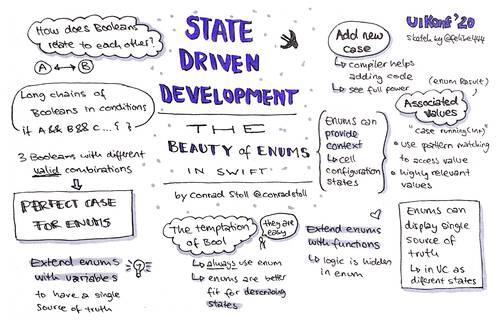 How does Booleans
relate to each other?
A ↔ B
Long chains of
Booleans in conditions
if A && B && C ... { }
3 Booleans with different
valid combinations
PERFECT CASE
FOR ENUMS
Extend enums
with variables
to have a single
source of truth
STATE
DRIVEN
DEVELOPMENT
THE
BEAUTY of ENUMS
IN SWIFT
by Conrad Stoll @conradstoll
The temptation
of Bool
they are
easy
↳ always use enum
↳ enums are better
fit for describing
states
Add new
case
↳ compiler helps
adding code
↳ see full power
Enums can
provide
context
↳ cell
configuration
states
Extend enums
with functions
↳ logic is hidden
in enum
UIKonf '20
sketch by
(enum Result)
Associated
values
"case running(Int)"
• use pattern matching
to access value
• highly relevant
values
Enums can
display single
source of
truth
↳ in VC as
different states